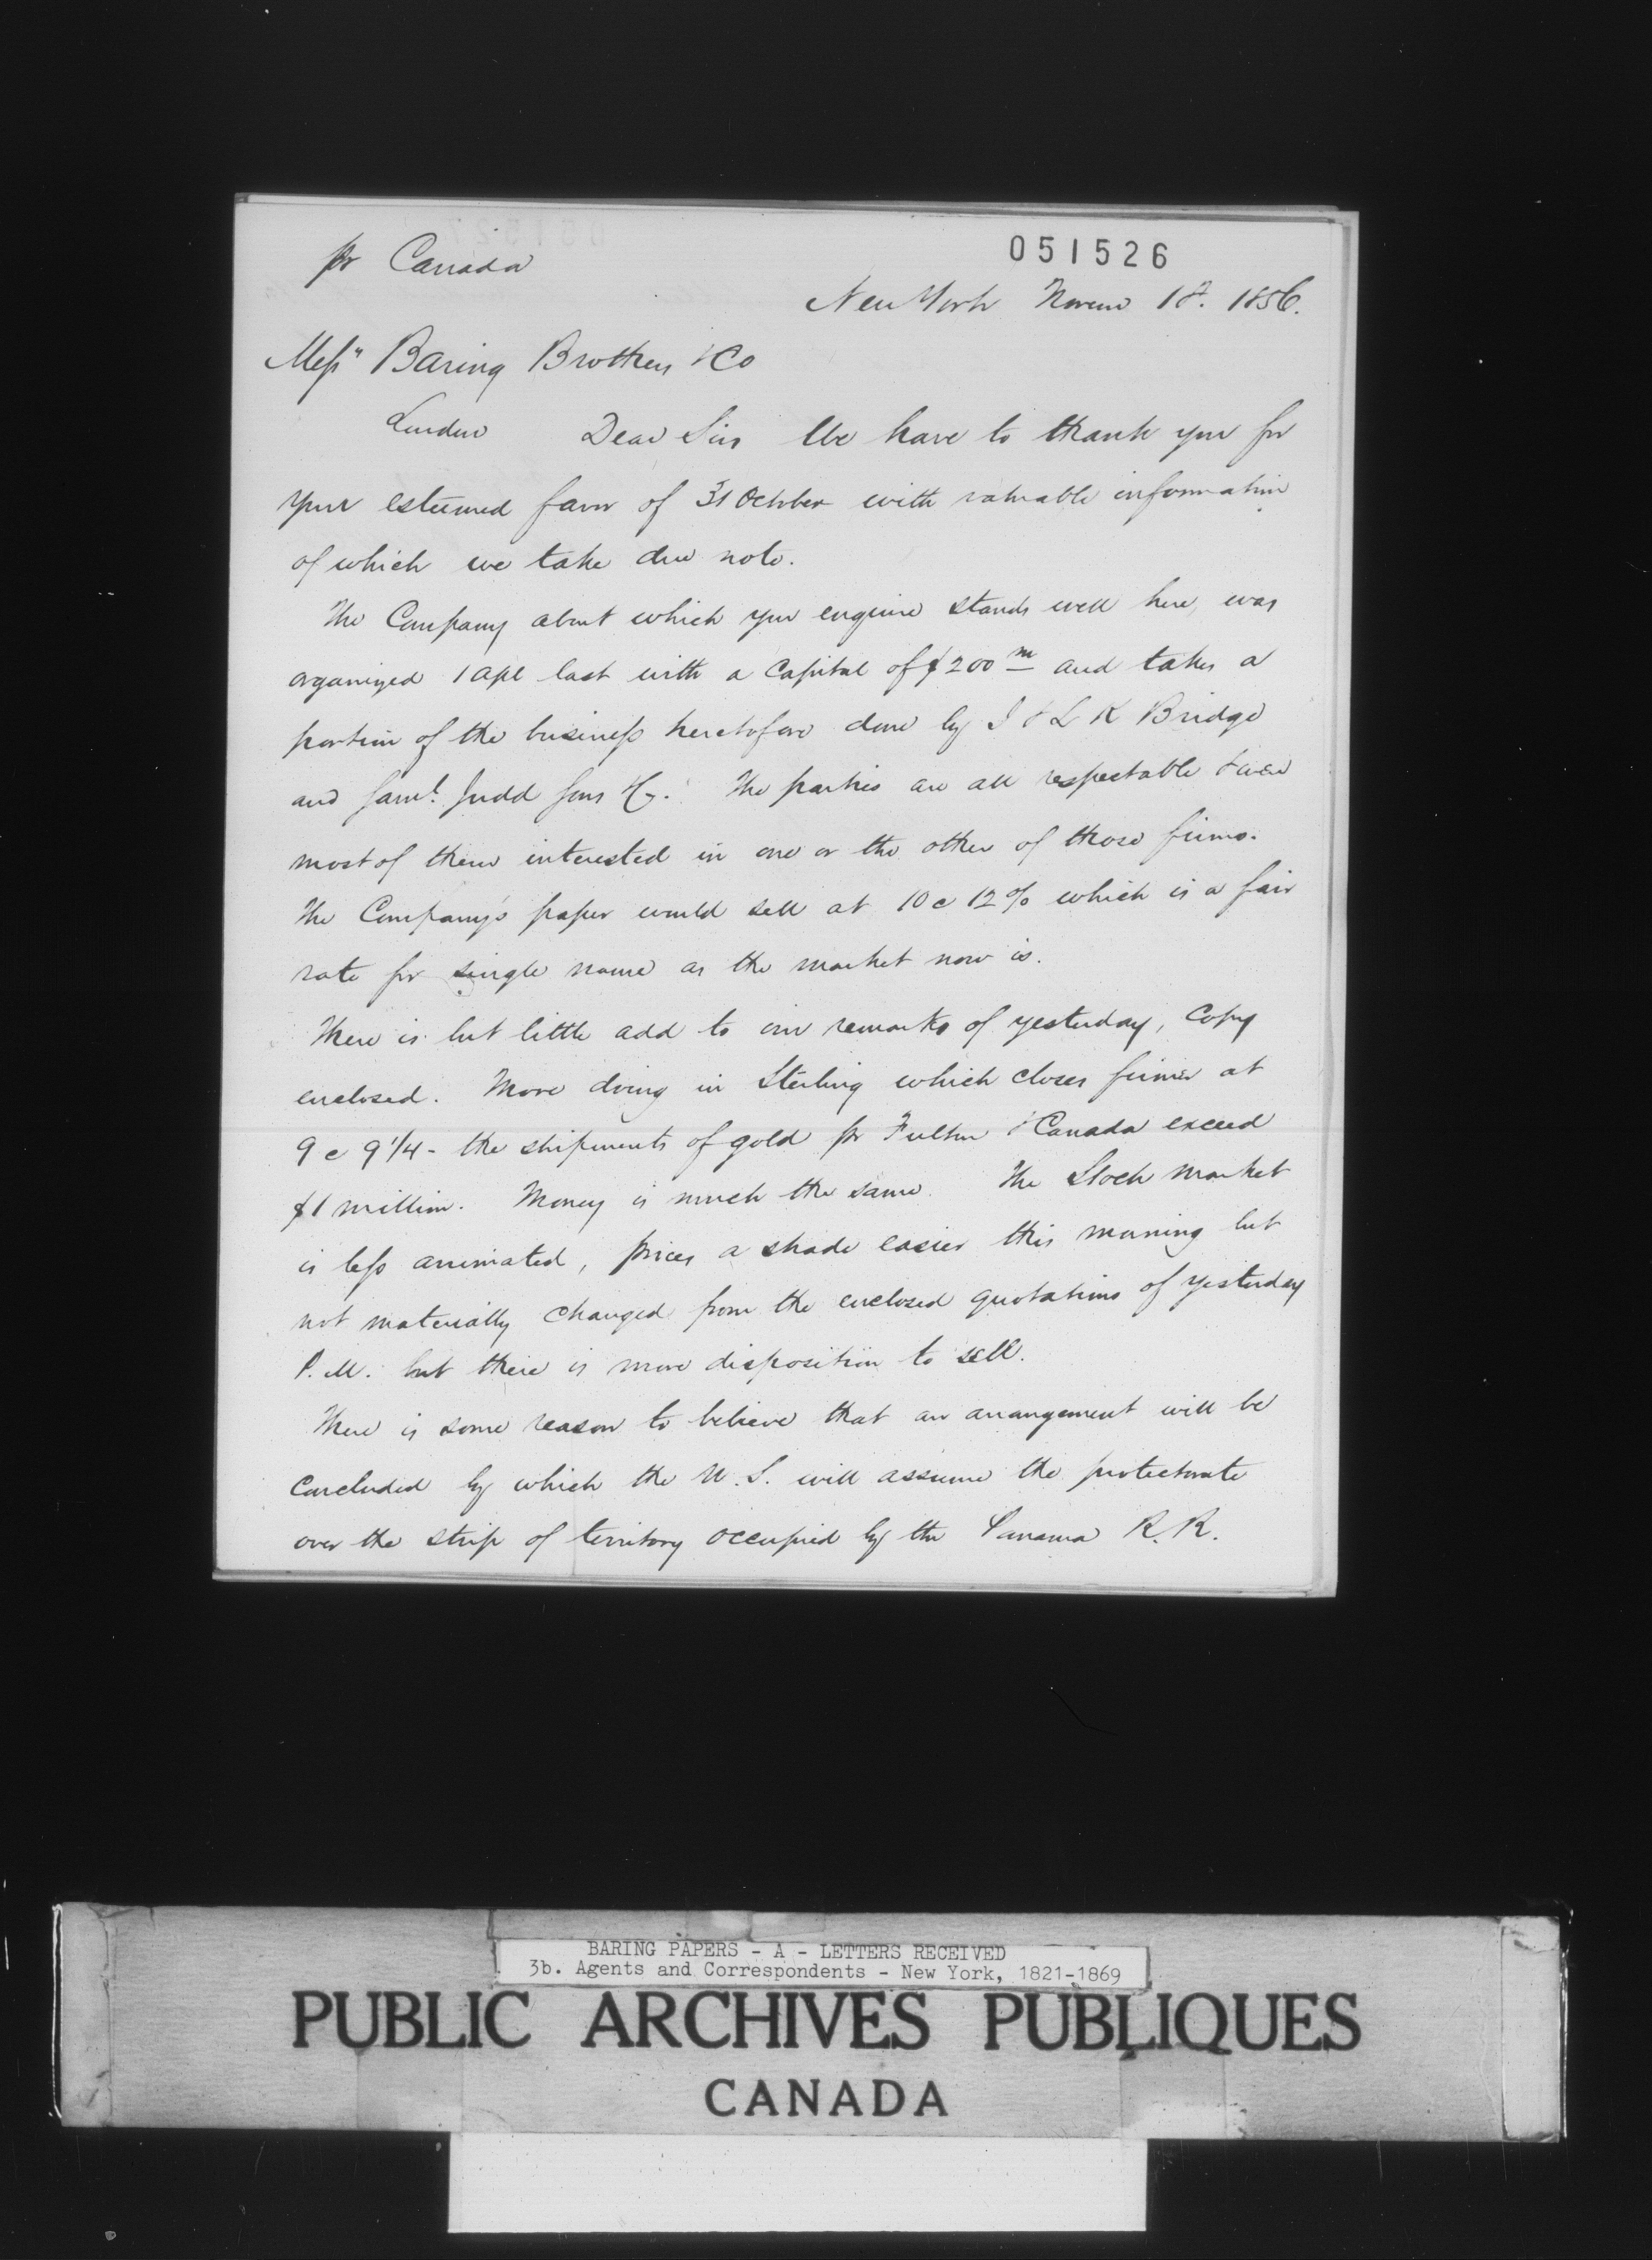 pr Canada
051526
New York Novem 18. 1856.
Messrs Baring Brothers & Co
London Dear Sirs We have to thank you for
your esteemed favor of 31 October with valuable information
of which we take due note.
The Company about which you enquire stands well here, was
organized 1 Apl last with a Capital of $200 m and takes a
portion of the business heretofore done by J & L K Bridge
and Saml. Judd Sons & Co. The parties are all respectable & were
most of them interested in one or the other of those firms.
The Company's paper would sell at 10 a 12% which is a fair
rate for single name as the market now is.
There is but little add to our remarks of yesterday, Copy
enclosed. More doing in Sterling which closes firmer at
9 a 9 1/4 - the shipments of gold pr Fulton & Canada exceed
$1 million. Money is much the same. The Stock market
is less animated, prices a shade easier this morning but
not materially changed from the enclosed quotations of yesterday
P.M. but there is more disposition to sell.
There is some reason to believe that an arrangement will be
concluded by which the U.S. will assume the protectorate
over the strip of territory occupied by the Panama R.R.
BARING PAPERS - A - LETTERS RECEIVED
3b. Agents and Correspondents - New York, 1821-1869
PUBLIC ARCHIVES PUBLIQUES
CANADA